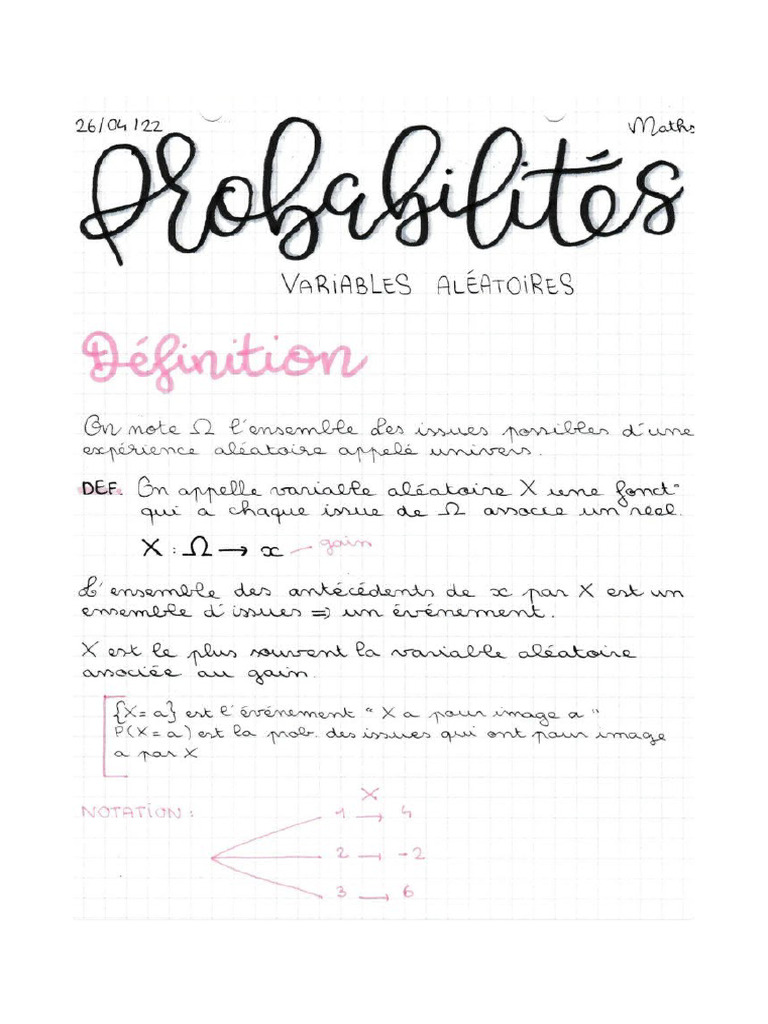 26/04/22 Maths
Probabilités
VARIABLES ALÉATOIRES
Définition
On note Ω l'ensemble des issues possibles d'une
expérience aléatoire appelé univers.
DEF. On appelle variable aléatoire X une fonct°
qui a chaque issue de Ω associe un réel.
X : Ω → x – gain
L'ensemble des antécédents de x par X est un
ensemble d'issues ⇒ un événement.
X est le plus souvent la variable aléatoire
associée au gain.
{X = a} est l'événement " X a pour image a "
P(X = a) est la prob. des issues qui ont pour image
a par X
NOTATION :
X
1 → 4
2 → -2
3 → 6